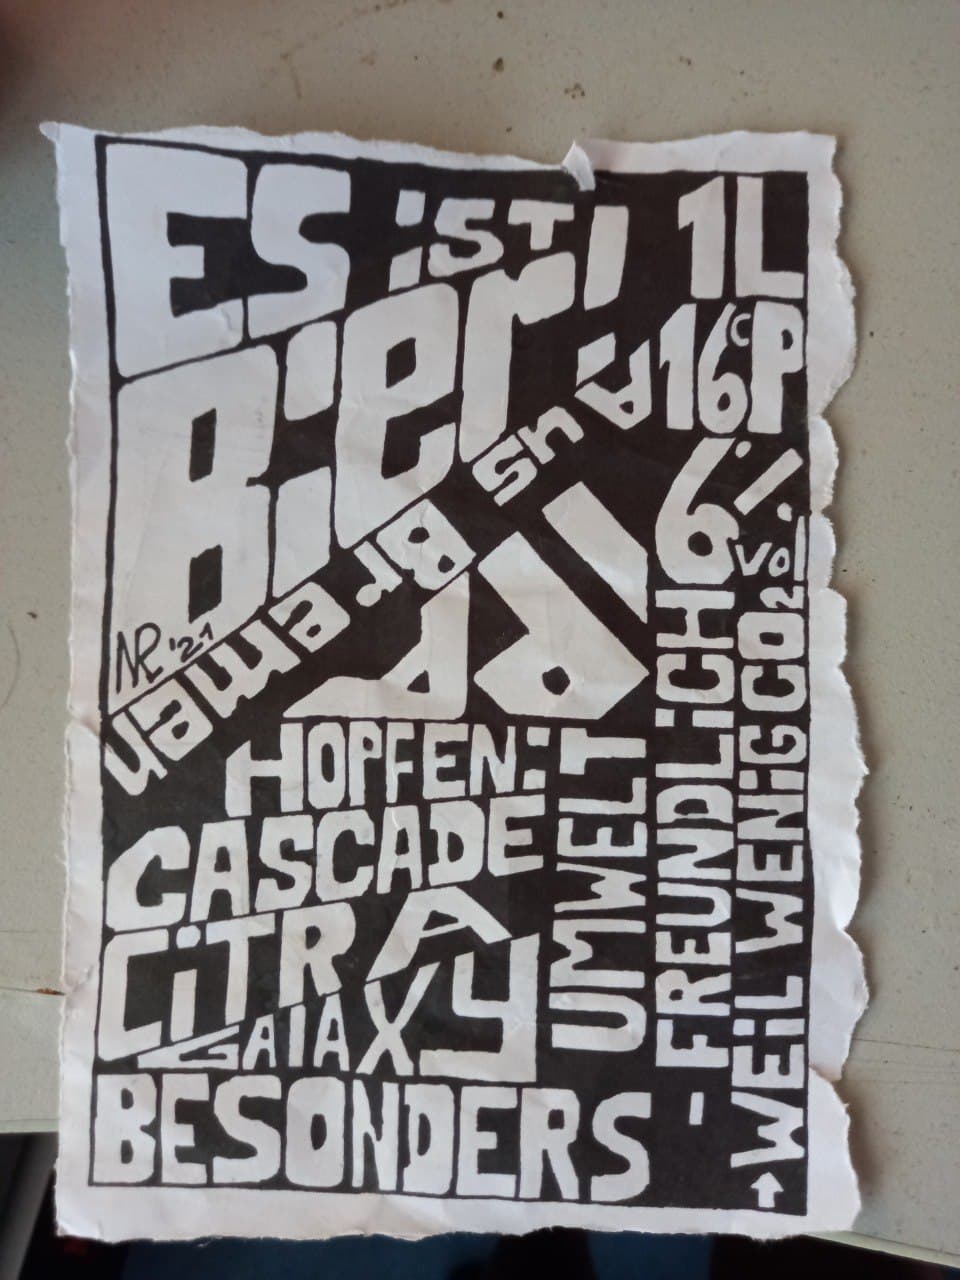 ES iST
Bier!
Aus Bremen
IPA
NR '21
1L
16°P
6% vol.
HOPFEN:
CASCADE
CiTRA
GAlAXY
BESONDERS -
UMWELT
FREUNDLiCH
→ WEiL WENiG CO2